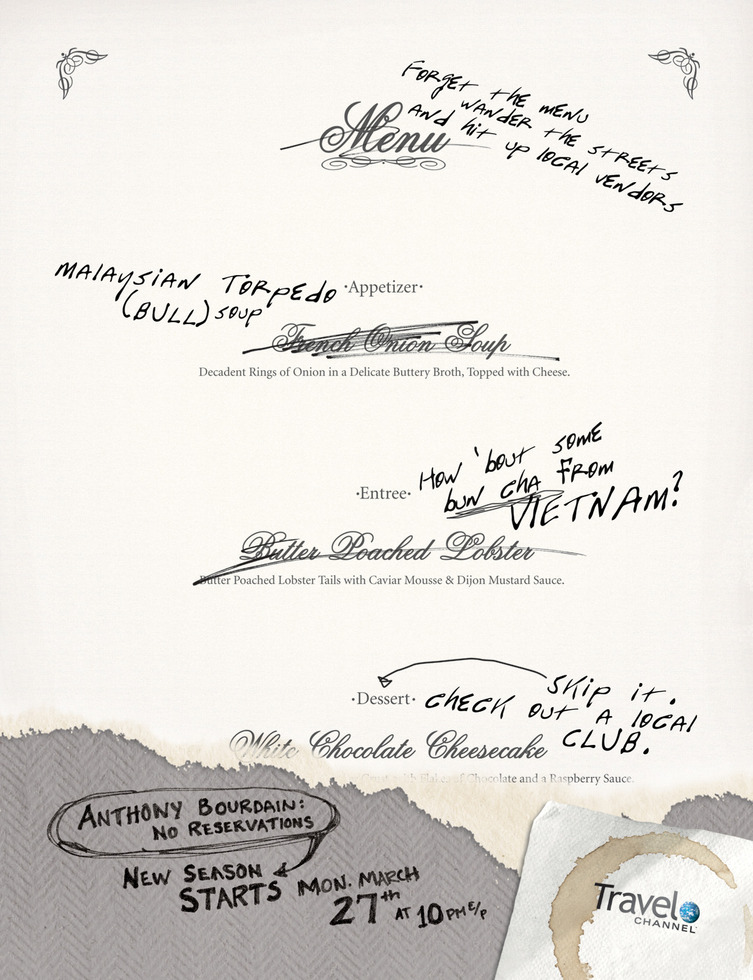 FORGET THE MENU
WANDER THE STREETS
AND HIT UP LOCAL VENDORS
Menu
MALAYSIAN TORPEDO
(BULL) SOUP
·Appetizer·
French Onion Soup
Decadent Rings of Onion in a Delicate Buttery Broth, Topped with Cheese.
HOW 'bout SOME
bUN CHA FROM
VIETNAM?
·Entree·
Butter Poached Lobster
Butter Poached Lobster Tails with Caviar Mousse & Dijon Mustard Sauce.
SKIP IT.
·Dessert·
CHECK OUT A LOCAL
CLUB.
White Chocolate Cheesecake
with Flakes of Chocolate and a Raspberry Sauce.
ANTHONY BOURDAIN:
NO RESERVATIONS
NEW SEASON
STARTS MON. MARCH
27th AT 10 PM E/P
Travel
CHANNEL